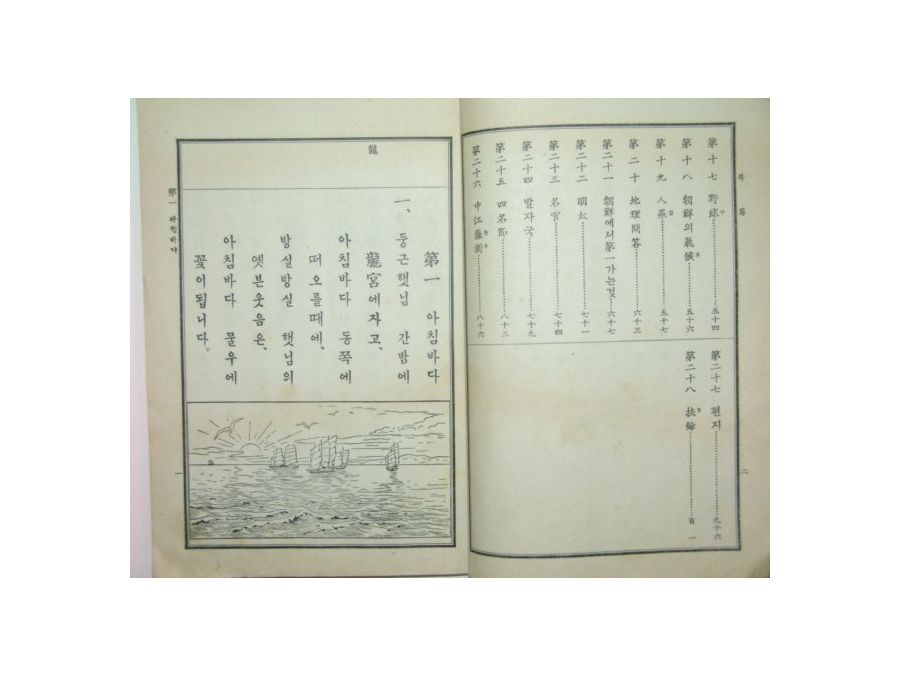 目次
第十七 野球 五十四
第十八 朝鮮의氣候 五十六
第十九 人蔘 五十七
第二十 地理問答 六十三
第二十一 朝鮮에서第一가는것 六十七
第二十二 明太 七十一
第二十三 名官 七十四
第二十四 발자국 七十九
第二十五 四名節 八十三
第二十六 中江藤樹 八十六
第二十七 편지 九十六
第二十八 扶餘 百一
二
龍
第一 아침바다
一、둥근햇님 간밤에
龍宮에자고、
아침바다 동쪽에
떠오를때에、
방실방실 햇님의
옛븐웃음은、
아침바다 물우에
꽃이됩니다。
第一 아침바다
一